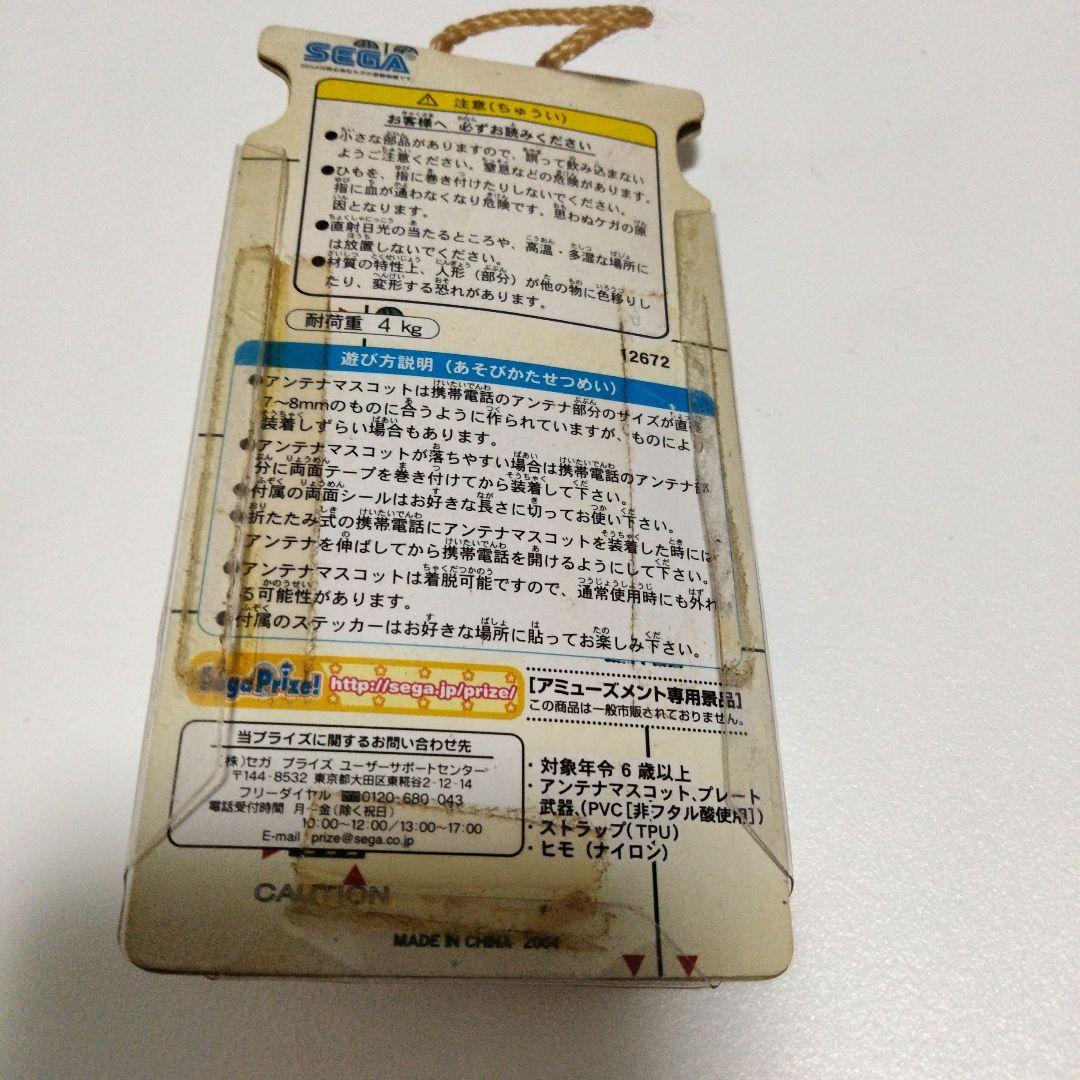 SEGA
⚠ 注意(ちゅうい)
お客様へ 必ずお読みください
●小さな部品がありますので、誤って飲み込まない
ようご注意ください。窒息などの危険があります。
●ひもを、指に巻き付けたりしないでください。
指に血が通わなくなり危険です。思わぬケガの原
因となります。
●直射日光の当たるところや、高温・多湿な場所に
は放置しないでください。
●材質の特性上、人形(部分)が他の物に色移りし
たり、変形する恐れがあります。
耐荷重 4 kg
12672
遊び方説明(あそびかたせつめい)
●アンテナマスコットは携帯電話のアンテナ部分のサイズが直
7〜8mmのものに合うように作られていますが、ものによ
装着しずらい場合もあります。
●アンテナマスコットが落ちやすい場合は携帯電話のアンテナ部
分に両面テープを巻き付けてから装着して下さい。
●付属の両面シールはお好きな長さに切ってお使い下さい。
●折たたみ式の携帯電話にアンテナマスコットを装着した時には
アンテナを伸ばしてから携帯電話を開けるようにして下さい。
●アンテナマスコットは着脱可能ですので、通常使用時にも外れ
る可能性があります。
●付属のステッカーはお好きな場所に貼ってお楽しみ下さい。
Sega Prize! http://sega.jp/prize/
[アミューズメント専用景品]
この商品は一般市販されておりません。
当プライズに関するお問い合わせ先
(株)セガ プライズ ユーザーサポートセンター
〒144-8532 東京都大田区東糀谷2-12-14
フリーダイヤル 0120-680-043
電話受付時間 月〜金(除く祝日)
10:00〜12:00/13:00〜17:00
E-mail prize@sega.co.jp
・対象年令6歳以上
・アンテナマスコット、プレート
武器、(PVC[非フタル酸使用])
・ストラップ(TPU)
・ヒモ(ナイロン)
CAUTION
MADE IN CHINA 2004